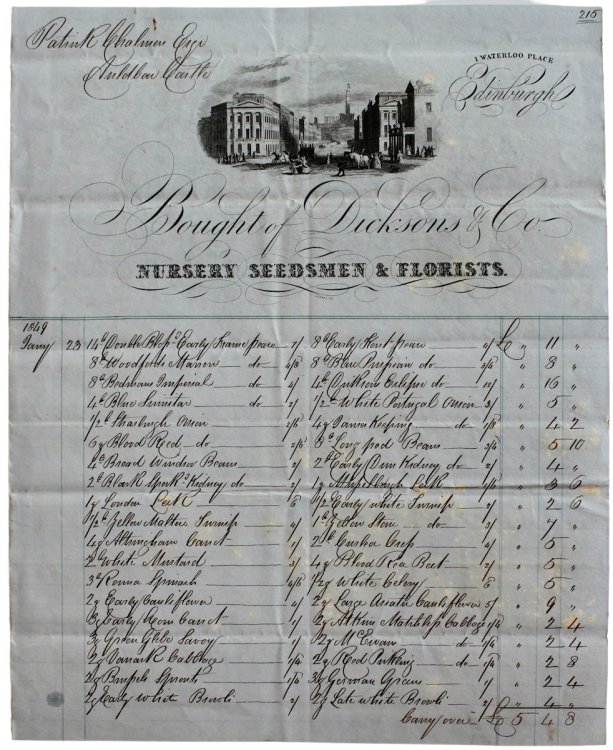 216
Patrick Chalmers Esqr
Auldbar Castle
1 WATERLOO PLACE
Edinburgh
Bought of Dicksons & Co.
NURSERY SEEDSMEN & FLORISTS.
1849
Jany 23 14 Double Early Frame pease 2/ 8 Early Kent pease 2/ £ „ 11 „
8 Woodfords Marrow do 8 Blue Prussian do „ 8 „
8 Bedmans Imperial do 4/ 4 Eclipse do „ 16 „
4 Blue do 2/ 1/2 White Portugal Onion 3/ „ 5 „
1/2 Strasburgh Onion 2/6 4 James Keeping do „ 4 2
6 Blood Red do 8 Long pod Beans „ 5 10
4 Broad Windsor Beans 2/ 2 Early Dun Kidney do 2/ „ 4 „
2 Black Kidney do 2/ 1 Musselburgh Leek „ 3 6
1 London Leek 6 1/2 Early white Turnip 2/ „ 2 6
1/2 Yellow Maltese Turnip 4/ 1 Yellow Stone do 3/ „ 7 „
4 Altringham Carrot 1/ 2 Cress 4/ „ 5 „
2 White Mustard 3/ 4 Blood Red Beet 2/ „ 5 „
3 Round Spinach 1/2 White Celery 6 „ 5 „
2 Early Cauliflower 4/ 2 Large Asiatic Cauliflower 5/ „ 9 „
3 Early Horn Carrot 1/ 2 Atkins Matchless Cabbage „ 2 4
3 Green Globe Savoy 1/ 2 McEwan do „ 2 4
2 Vanack Cabbage 2 Red Pickling do „ 2 8
2 Brussels Sprouts 3 German Greens 1/ „ 2 4
2 Early White Brocoli 2/ 2 Late White Brocoli 2/ „ 4 „
Carry over £ 5 4 8